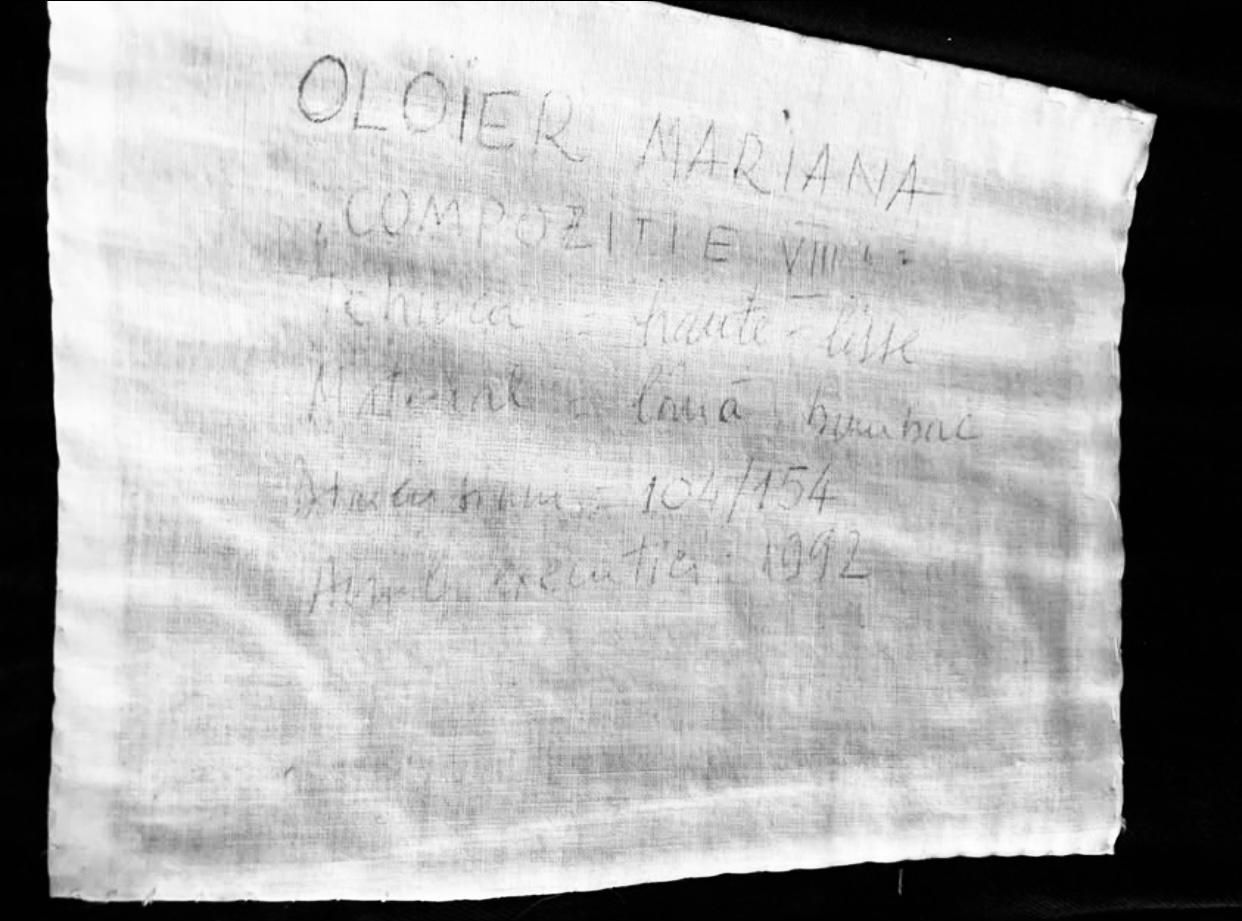 OLOIER MARIANA
„COMPOZITIE VIII":
Tehnica = haute-lisse
Material = lână bumbac
104/154
Anul executiei 1992